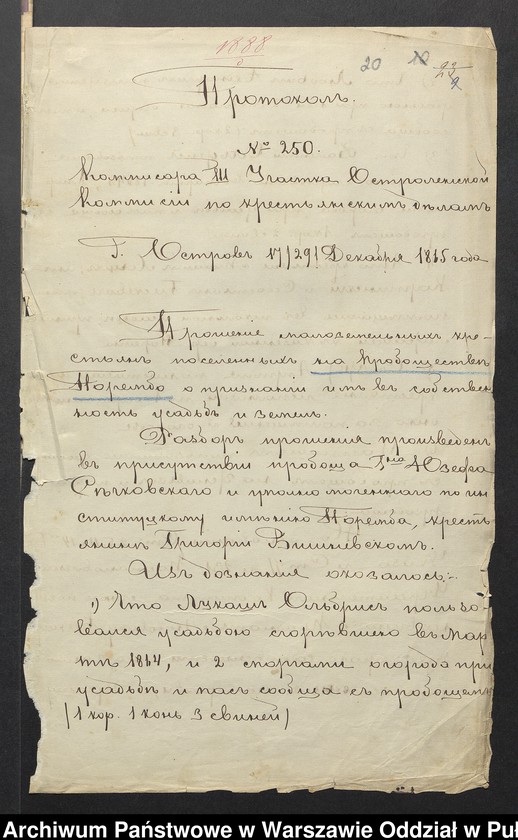 1888
20 10 23
9
Протоколъ.
№ 250.
Коммисара III Участка Остроленской
Коммисіи по крестьянскимъ дѣламъ
Г. Островъ 17/29 Декабря 1865 года
Прошеніе малоземельныхъ кре-
стьянъ поселенныхъ на пробоществѣ
Поремба о признаніи имъ въ собствен
ность усадьбъ и земель.
Разборъ прошенія произведенъ
въ присутствіи пробоща Г-на Юзефа
Сѣчковскаго и уполномоченнаго по ин
ституцкому имѣнію Поремба, кресть
янинъ Григорій Вишневскомъ.
Изъ дознанія оказалось:
1) Что Лукашъ Ольбрисъ пользо-
вался усадьбою сгорѣвшею въ Мар
тѣ 1864, и 2 моргами огорода при
усадьбѣ и пасъ сообща съ пробощемъ
/1 кор. 1 конь 3 свиней/
Archiwum Państwowe w Warszawie Oddział w Puł